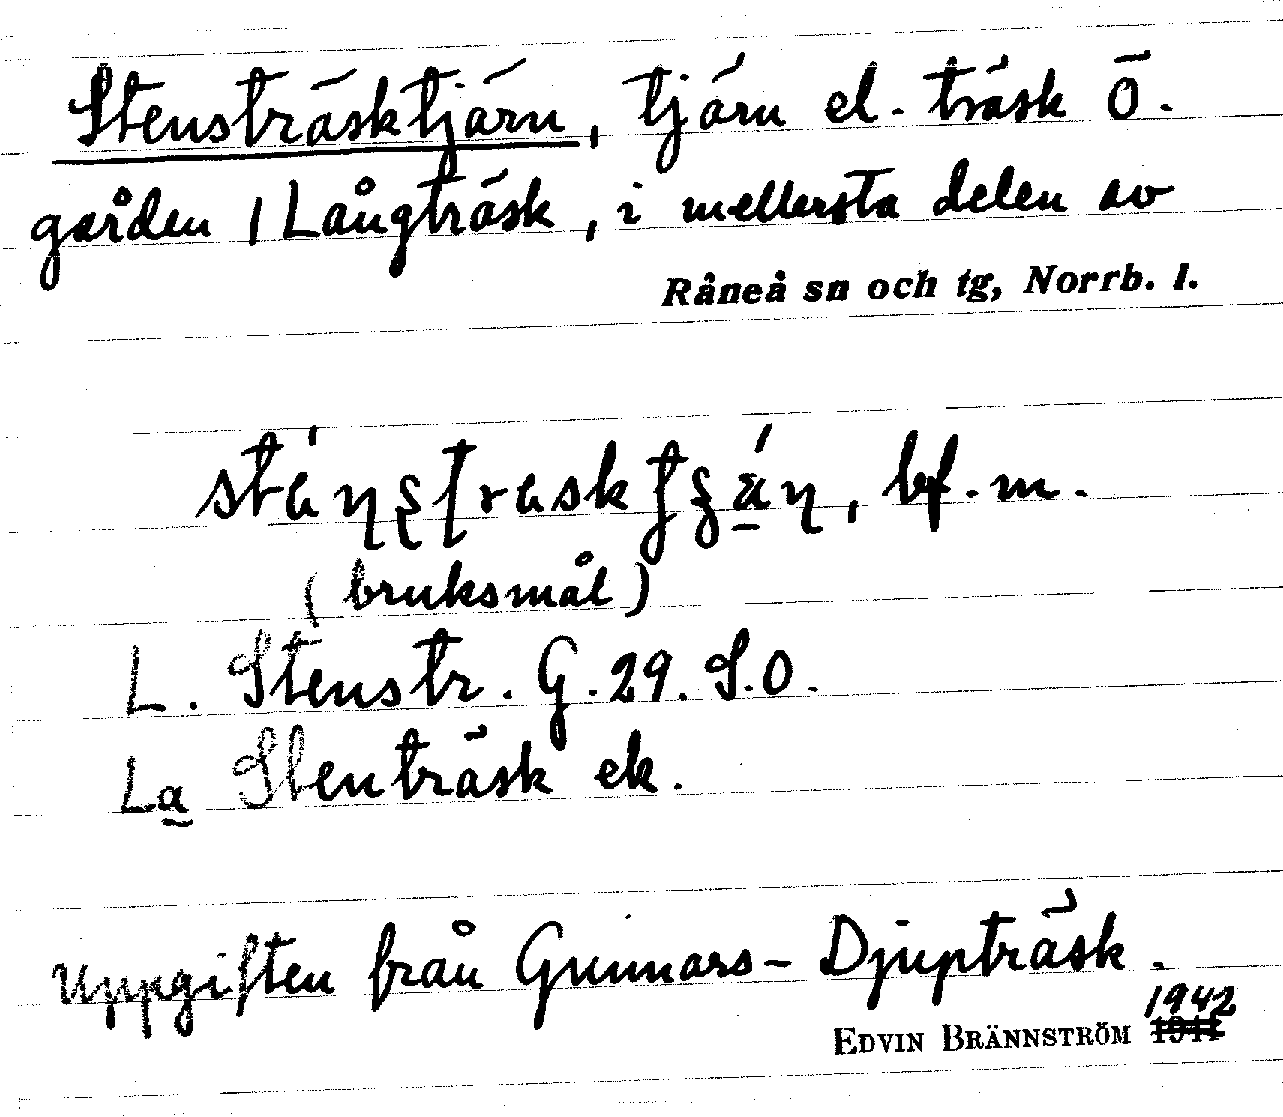 Stensträsktjärn, tjärn el. träsk ö.
gården 1 Långträsk, i mellersta delen av
Råneå sn och tg, Norrb. l.
bf. m.
(bruksmål)
L. Stenstr. G. 29. S.O.
La Stenträsk ek.
Uppgiften från Gunnars-Djupträsk.
1942
EDVIN BRÄNNSTRÖM 1941